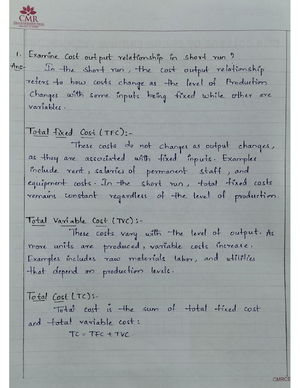 CMR
1. Examine Cost output relationship in short run ?
Ans- In the short run, the cost output relationship
refers to how costs change as the level of Production
Changes with some inputs being fixed while other are
variables.
Total fixed Cost (TFC):-
These costs do not changes as output changes,
as they are associated with fixed inputs. Examples
include rent, salaries of permanent staff, and
equipment costs. In the short run, total fixed costs
remains constant regardless of the level of production.
Total Variable Cost (TVC):-
These costs vary with the level of output. As
more units are produced, variable costs increase.
Examples includes raw materials labor, and utilities
that depend on production levels.
Total Cost (TC):-
Total cost is the sum of total fixed cost
and total variable cost:
TC = TFC + TVC